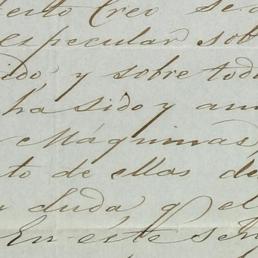 Creo se
especular sob
ido, y sobre todo
ha sido y
Máquinas,
to de ellas de
duda q. el
En este se